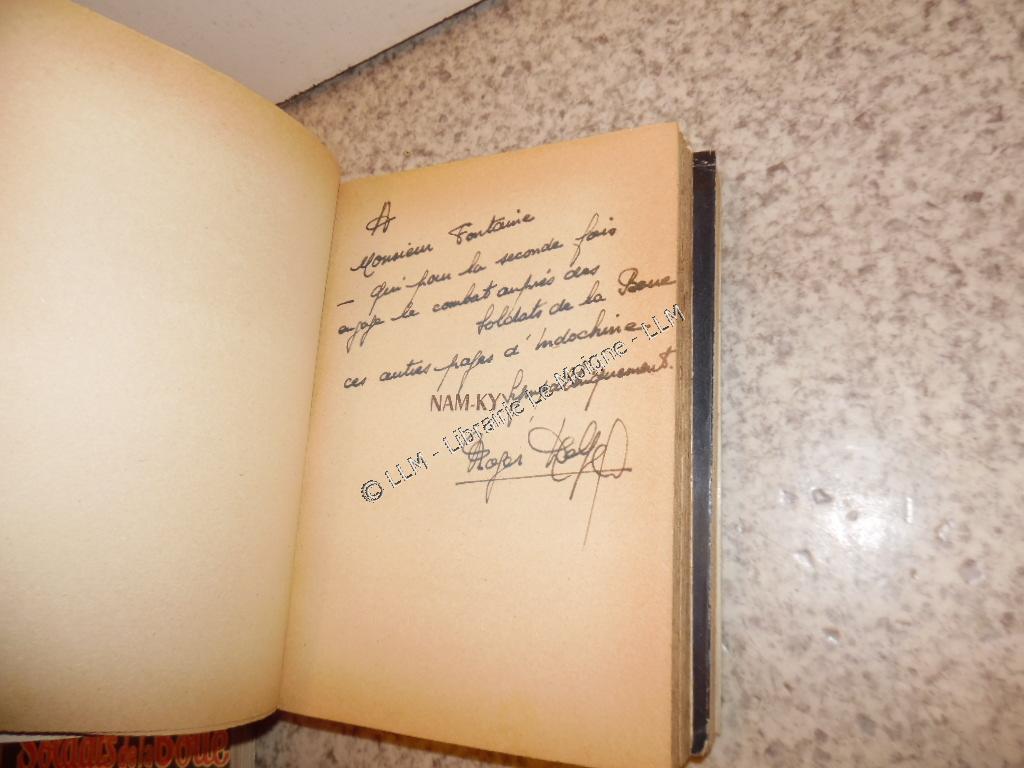 A
Monsieur Fontaine
– qui pour la seconde fois
a jugé le combat auprès des
Soldats de la Boue
ces autres pages d'Indochine
Sympathiquement.
NAM-KY
Roger Delpey
© LLM - Librairie Le Moigne - LLM
Soldats de la Boue